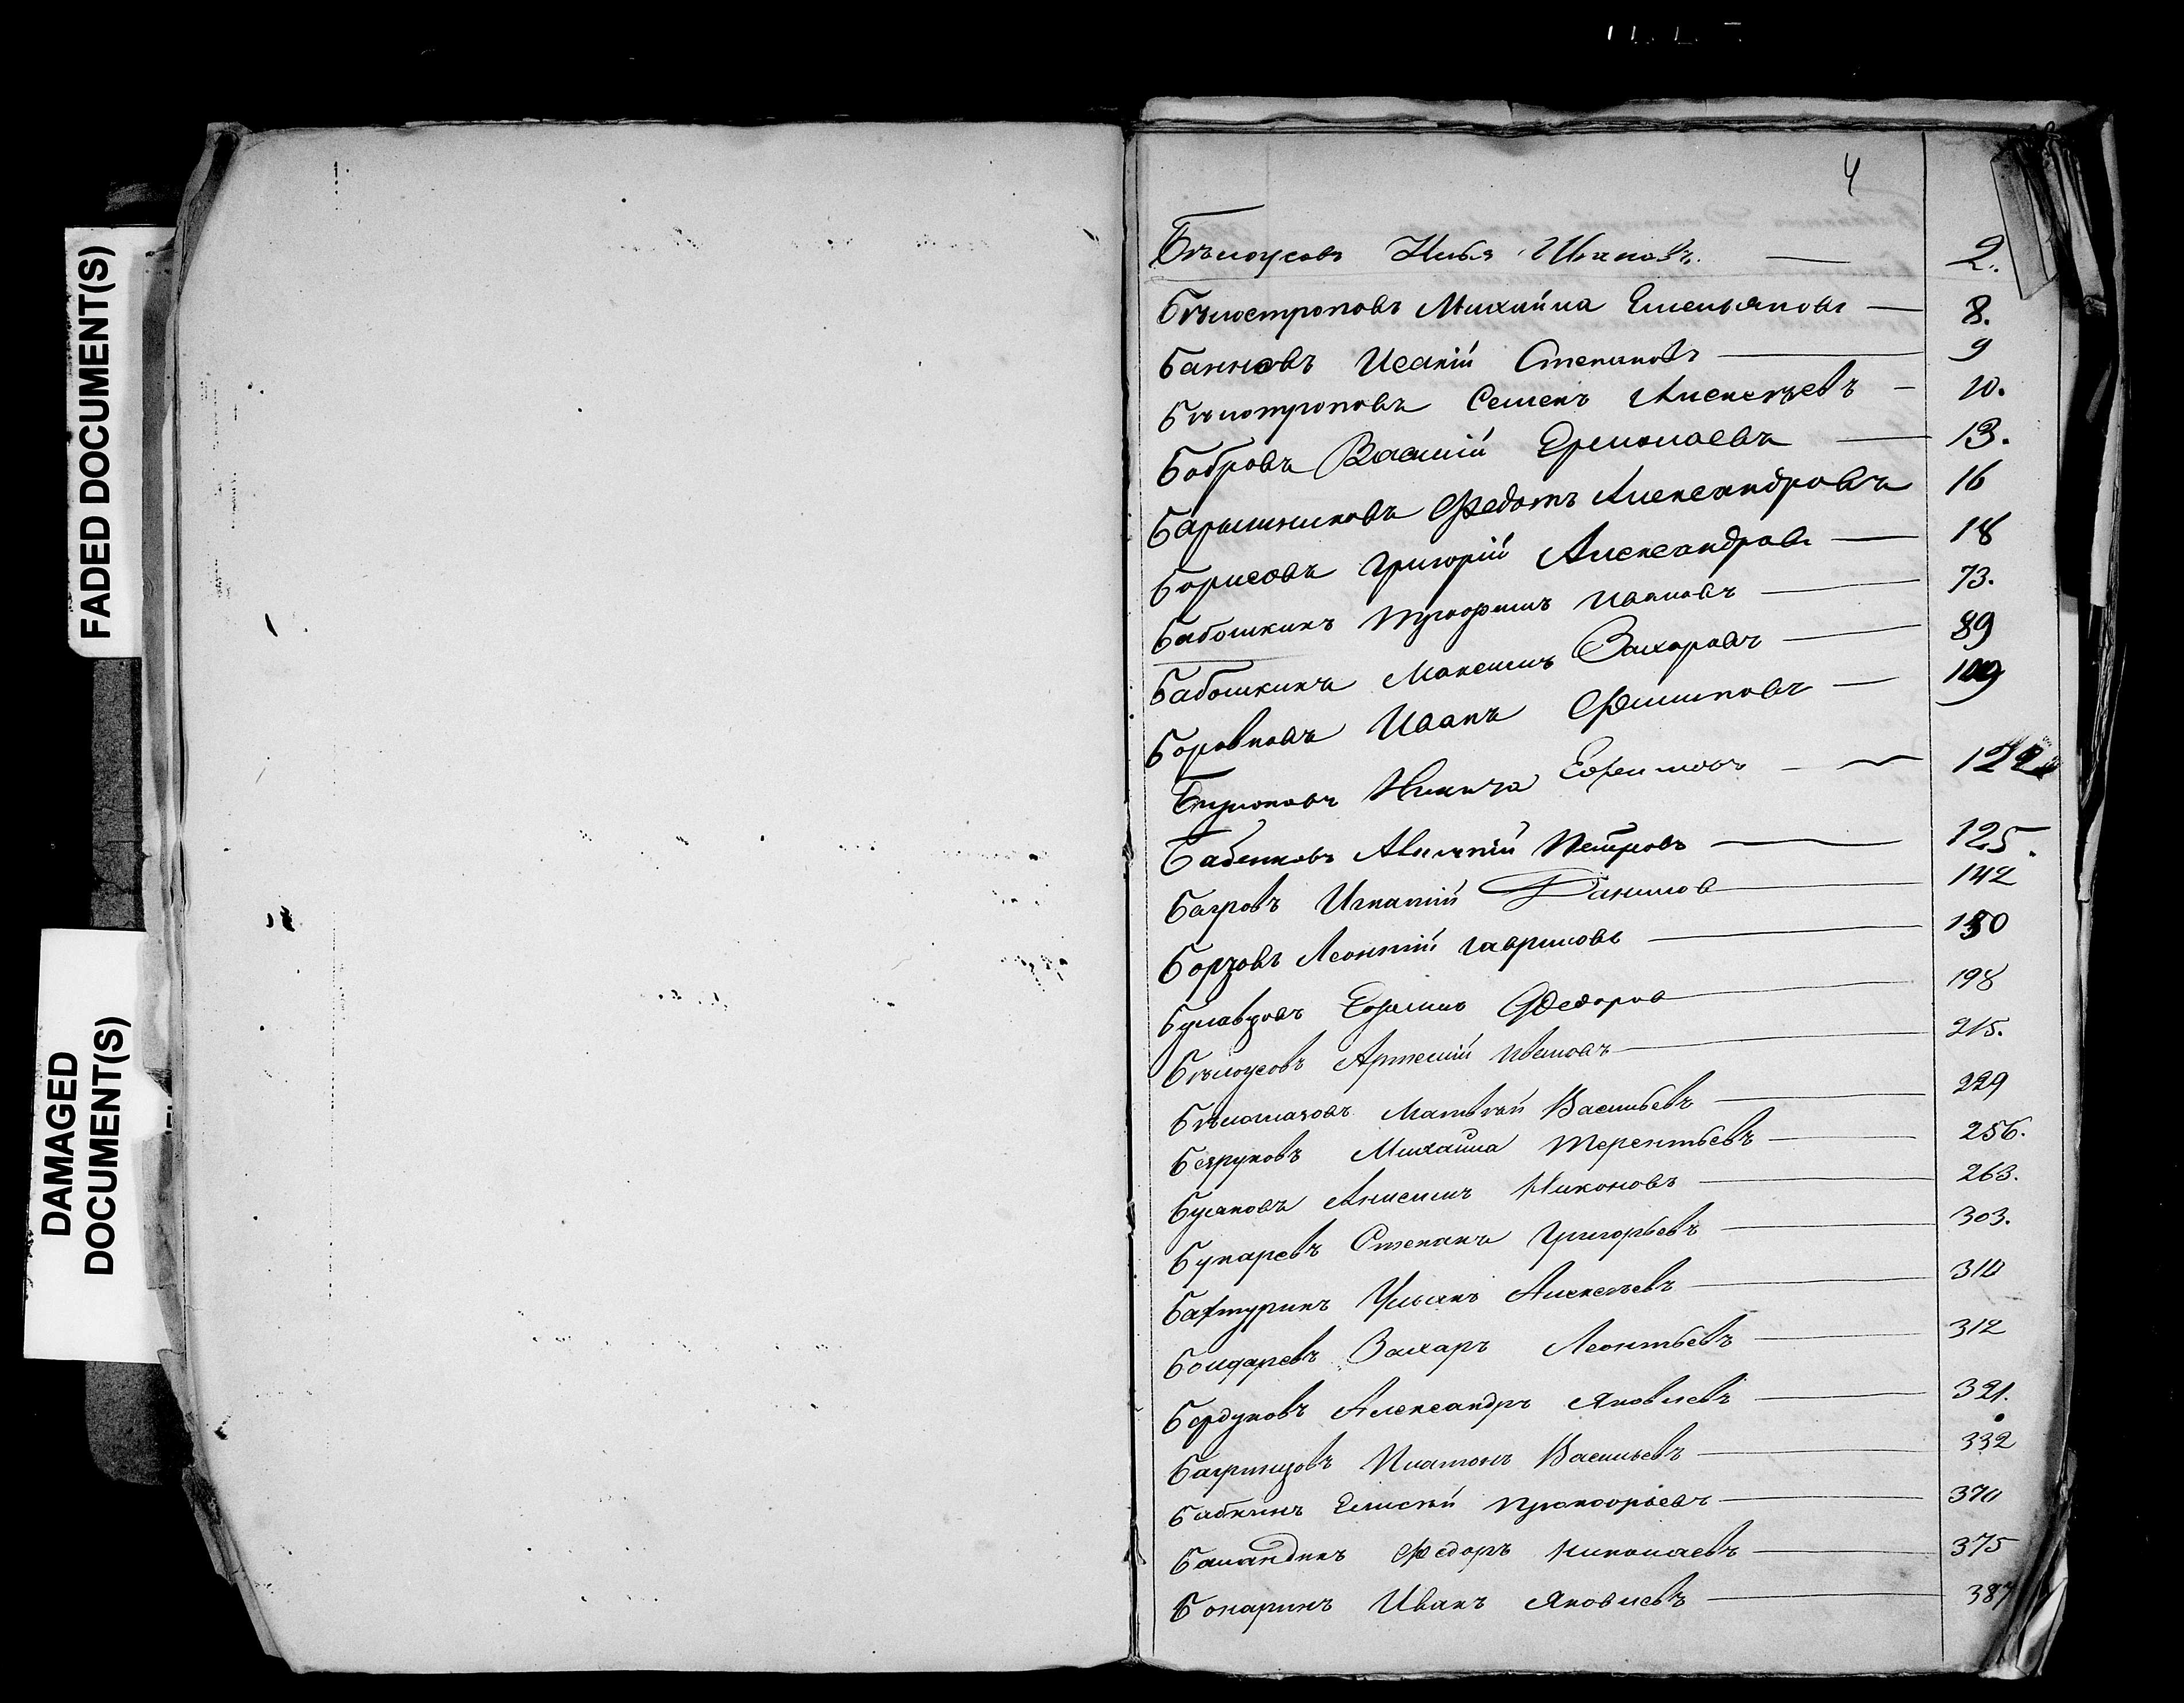 FADED DOCUMENT(S)
DAMAGED
DOCUMENT(S)
4
Бѣлоусовъ Илья Ивановъ. — 2.
Бѣлостроповъ Михайла Емельяновъ — 8.
Банновъ Исакій Степановъ — 9
Семенъ Алексѣевъ — 10.
Бобровъ Василій Ермолаевъ — 13.
Барышниковъ Федотъ Александровъ 16
Борисовъ Григорій Александровъ — 18
Бабошкинъ Трофимъ Ивановъ — 73.
Бабошкинъ Максимъ Захаровъ — 89
Боровковъ Иванъ Филиповъ — 109
Бирюковъ Никита Ефимовъ — 122
Бабенковъ Петровъ — 125.
Багровъ Игнатій Данилов — 142
Борзовъ Леонтій Гавриловъ — 150
Ефимъ Федоров — 198
Бѣлоусовъ Артемій Ивановъ — 215.
Матвѣй Васильевъ — 229
Безруковъ Михайла Терентьевъ — 256.
Бусаковъ Анисимъ Никоновъ — 263.
Букаревъ Степанъ Григорьевъ — 303.
Бахтуринъ Ульянъ Алексѣевъ — 310
Бондаревъ Захаръ Леонтьевъ — 312
Бердуковъ Александръ Яковлевъ — 321.
Багринцовъ Платонъ Васильевъ — 332
Бабкинъ Елисѣй Прокофьевъ — 370
Баландинъ Федоръ Николаевъ — 375
Бокаринъ Иванъ Яковлевъ — 387